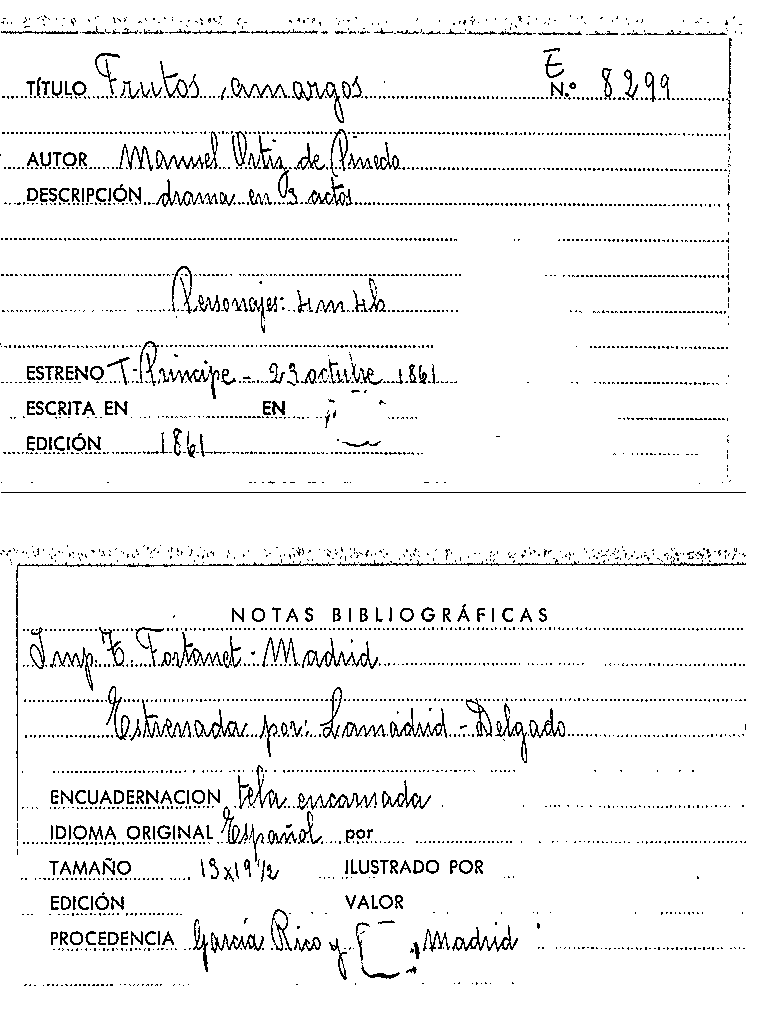 TÍTULO Frutos amargos E N.º 8299
AUTOR Manuel Ortiz de Pinedo
DESCRIPCIÓN drama en 3 actos
Personajes: 4m 4h
ESTRENO T. Príncipe - 23 octubre 1861
ESCRITA EN EN
EDICIÓN 1861
NOTAS BIBLIOGRÁFICAS
Imp. T. Fortanet - Madrid
Estrenada por: Lamadrid - Delgado
ENCUADERNACION tela encarnada
IDIOMA ORIGINAL Español por
TAMAÑO 13x19½ ILUSTRADO POR
EDICIÓN VALOR
PROCEDENCIA García Rico y Madrid